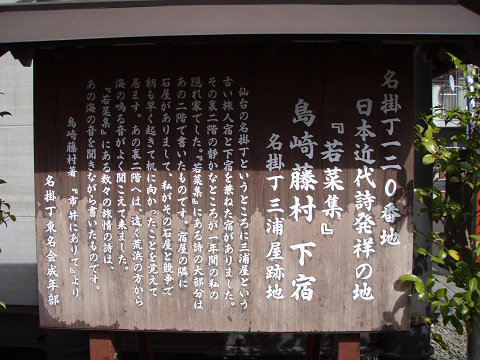 名掛丁一二〇番地
日本近代詩発祥の地
『若菜集』
島崎藤村 下宿
名掛丁三浦屋跡地
仙台の名掛丁というところに三浦屋という
古い旅人宿と下宿を兼ねた宿がありました。
その裏二階の静かなところが一年間の私の
隠れ家でした。『若菜集』にある詩の大部分は
あの二階で書いたものです。宿屋の隣に
石屋がありまして、私がその石屋と競争で
朝も早く起きて机に向かったことを覚えて
居ます。あの裏二階へは、遠く荒浜の方から
海の鳴る音がよく聞こえて来ました。
『若菜集』にある数々の旅情の詩は、
あの海の音を聞きながら書いたものです。
島崎藤村著『市井にありて』より
名掛丁東名会成年部